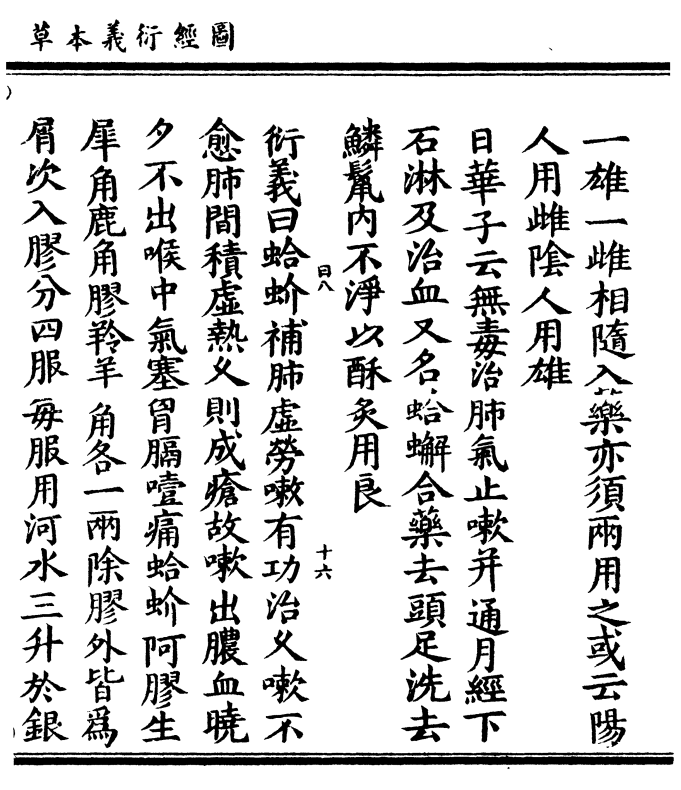 圖經衍義本草
一雄一雌相隨入藥亦須兩用之或云陽
人用雌陰人用雄
日華子云無毒治肺氣止嗽并通月經下
石淋及治血又名蛤蠏合藥去頭足洗去
鱗鬣內不淨以酥炙用良
衍義曰蛤蚧補肺虛勞嗽有功治乆嗽不
愈肺間積虛熱乆則成瘡故嗽出膿血曉
夕不出喉中氣塞胷膈噎痛蛤蚧阿膠生
犀角鹿角膠羚羊角各一兩除膠外皆爲
屑次入膠分四服每服用河水三升於銀
曰八
十六